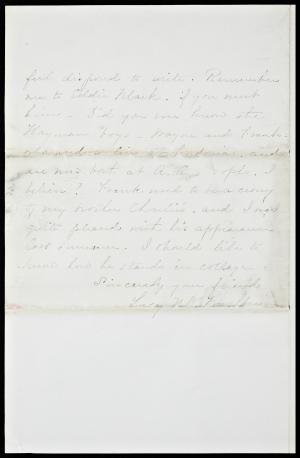 feel disposed to write. Remember
me to Eddie Mack. if you meet
him. Did you ever know the
Heyman boys - Wayne and Frank -
live at
are now both at I
believe? Frank used to be a crony
of my brother Charlie's. and I was
quite pleased with his appearance
last summer. I should like to
know how he stands in college.
Sincerely your friend
Lucy